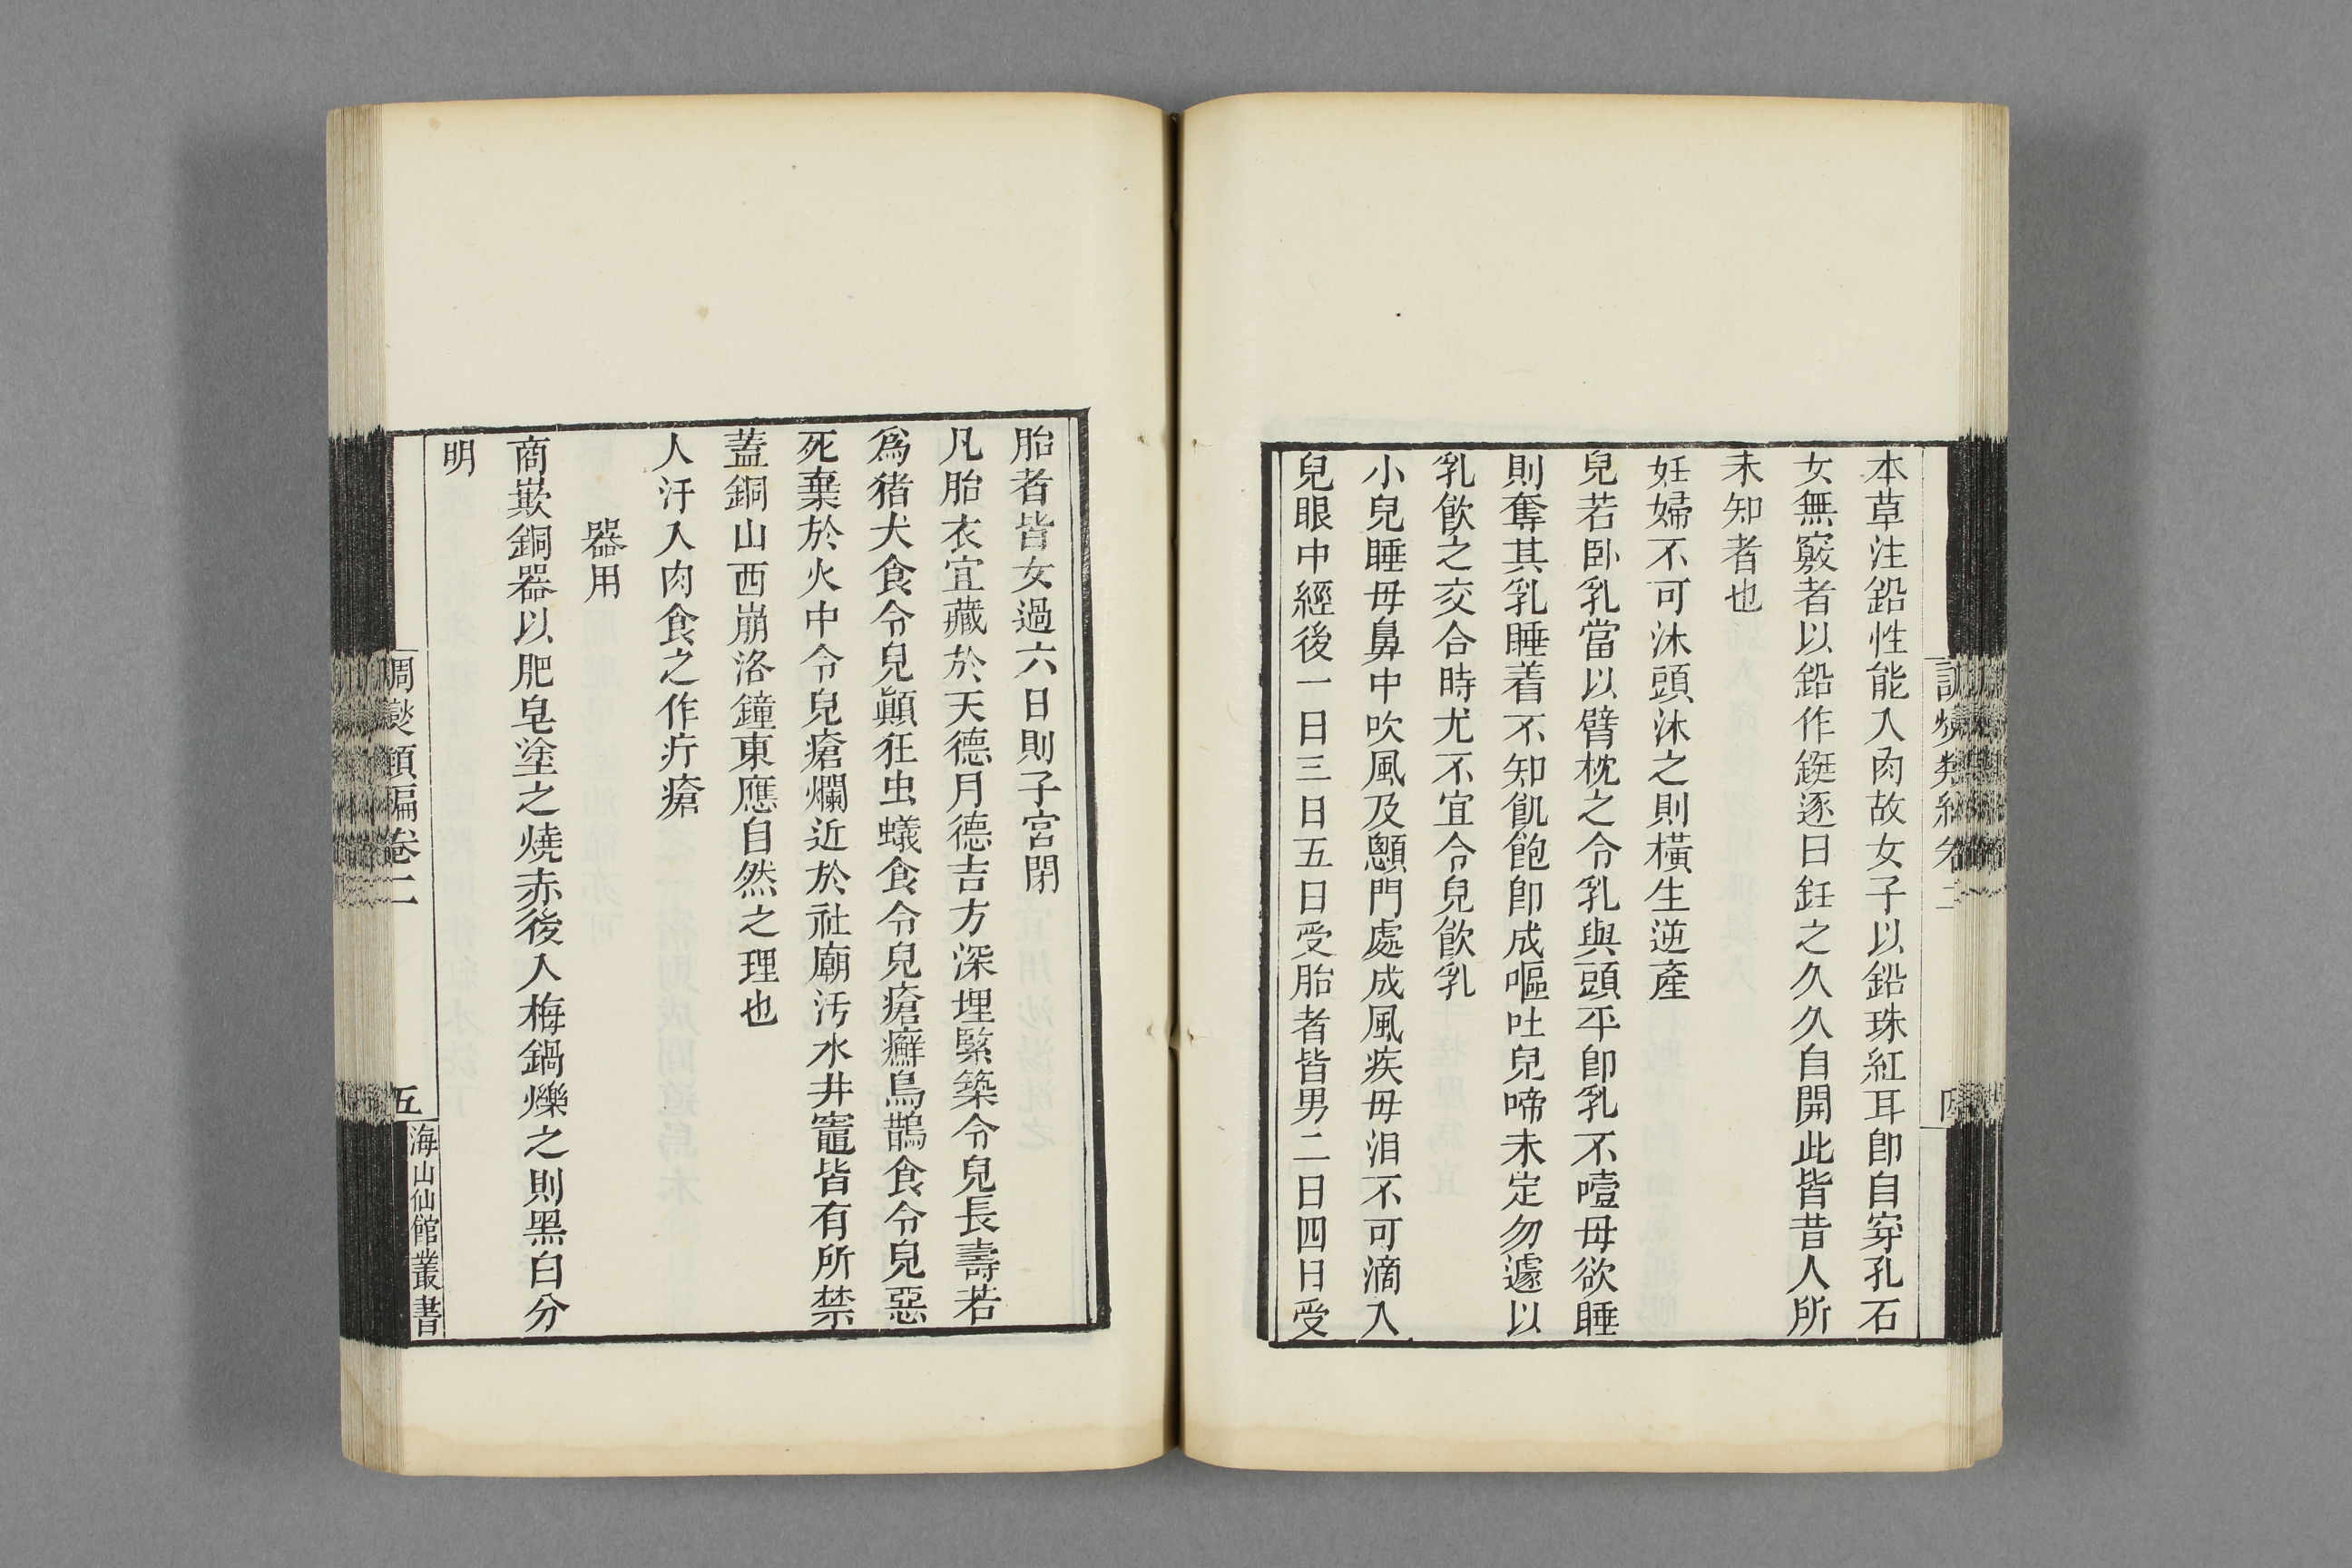 本草注鉛性能入肉故女子以鉛珠紅耳卽自穿孔石
女無竅者以鉛作鋌逐日鈺之久久自開此皆昔人所
未知者也
妊婦不可沐頭沐之則橫生逆產
兒若卧乳當以臂枕之令乳與頭平卽乳不噎母欲睡
則奪其乳睡着不知飢飽卽成嘔吐兒啼未定勿遽以
乳飲之交合時尤不宜令兒飲乳
小兒睡母鼻中吹風及顖門處成風疾母泪不可滴入
兒眼中經後一日三日五日受胎者皆男二日四日受
胎者皆女過六日則子宮閉
凡胎衣宜藏於天德月德吉方深埋緊築令兒長壽若
爲猪犬食令兒顚狂虫蟻食令兒瘡癬鳥鵲食令兒惡
死棄於火中令兒瘡爛近於社廟汚水井竈皆有所禁
蓋銅山西崩洛鐘東應自然之理也
人汗入肉食之作疔瘡
器用
商嵌銅器以肥皂塗之燒赤後入梅鍋爍之則黑白分
明
調燮類編卷二
五
海山仙館叢書